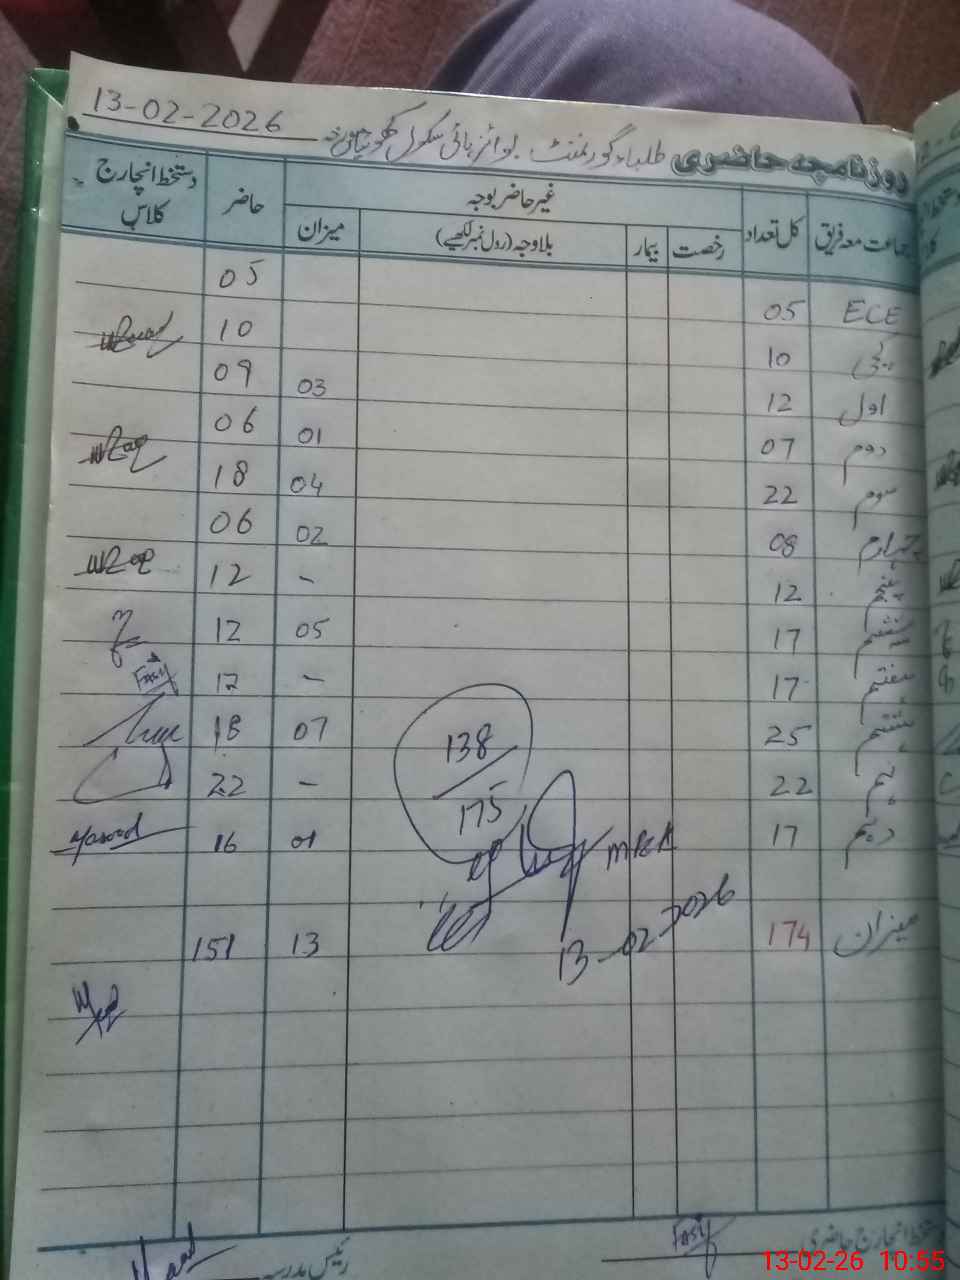 13-02-2026
روزنامچہ حاضری طلباء گورنمنٹ بوائز ہائی سکول
جماعت معہ فریق کل تعداد غیر حاضر بوجہ حاضر دستخط انچارج کلاس
رخصت بیمار بلاوجہ (رول نمبر لکھیے) میزان
ECE 05 05
10 10
اول 12 03 09
دوم 07 01 06
سوم 22 04 18
چہارم 08 02 06
پنجم 12 - 12
ششم 17 05 12
ہفتم 17 - 17
Fasy
ہشتم 25 07 18
نہم 22 - 22
دہم 17 01 16
Masood
138
175
MBEA
13-02-2026
میزان 174 13 151
دستخط انچارج حاضری Fasy
رئیس مدرسہ
13-02-26 10:55